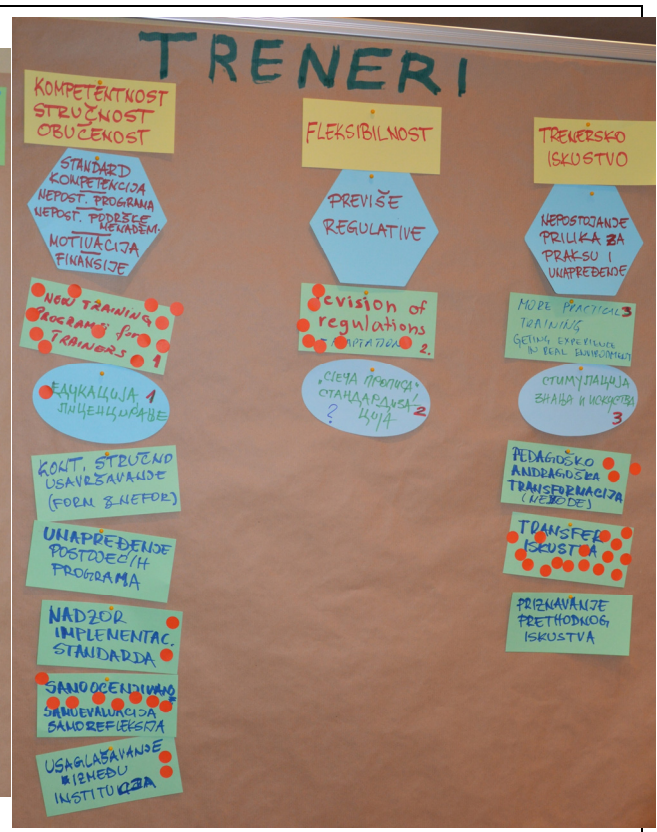 TRENERI
KOMPETENTNOST
STRUČNOST
OBUČENOST
STANDARD
KOMPETENCIJA
NEPOST. PROGRAMA
NEPOST. PODRŠCE
MENADŽM.
MOTIVACIJA
FINANSIJE
NEW TRAINING
PROGRAMS for
TRAINERS 1
ЕДУКАЦИЈА 1
ЛИЦЕНЦИРАЊЕ
KONT. STRUČNO
USAVRŠAVANJE
(FORM & NEFOR)
UNAPREĐENJE
POSTOJEĆIH
PROGRAMA
NADZOR
IMPLEMENTAC.
STANDARDA
SAMOOCENJIVANJE
SAMOEVALUACIJA
SAMOREFLEKSIJA
USAGLAŠAVANJE
IZMEĐU
INSTITUCIJA
FLEKSIBILNOST
PREVIŠE
REGULATIVE
revision of
regulations
2.
„СЈЕЧА ПРОПИСА"!
СТАНДАРДИЗА- 2
ЦИЈА
?
TRENERSKO
ISKUSTVO
NEPOSTOJANJE
PRILIKA ZA
PRAKSU I
UNAPREĐENJE
MORE PRACTICAL 3
TRAINING
GETING EXPERIENCE
IN REAL ENVIRONMENT
СТИМУЛАЦИЈА
ЗНАЊА И ИСКУСТВА
3
PEDAGOŠKO
ANDRAGOŠKA
TRANSFORMACIJA
TRANSFER
ISKUSTVA
PRIZNAVANJE
PRETHODNOG
ISKUSTVA